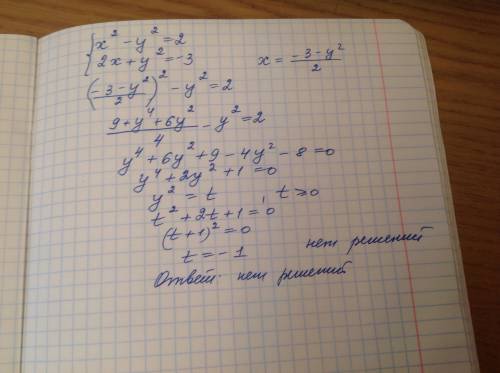 {x² - y² = 2
{2x + y² = -3     x = (-3 - y²)/2
((-3 - y²)/2)² - y² = 2
(9 + y⁴ + 6y²)/4 - y² = 2
y⁴ + 6y² + 9 - 4y² - 8 = 0
y⁴ + 2y² + 1 = 0
y² = t,     t ≥ 0
t² + 2t + 1 = 0
(t + 1)² = 0
t = -1     нет решений
Ответ: нет решений